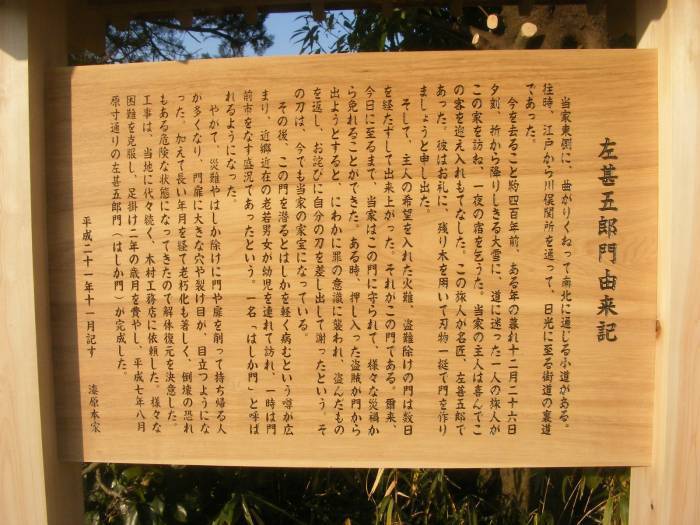 左甚五郎門由来記
当家東側に、曲がりくねって南北に通じる小道がある。
往時、江戸から川俣関所を通って、日光に至る街道の裏道
であった。
今を去ること約四百年前、ある年の暮れ十二月二十六日
夕刻、折から降りしきる大雪に、道に迷った一人の旅人が
この家を訪ね、一夜の宿を乞うた。当家の主人は喜んでこ
の客を迎え入れもてなした。この旅人が名匠、左甚五郎で
あった。彼はお礼に、残り木を用いて刃物一挺で門を作り
ましょうと申し出た。
そして、主人の希望を入れた火難、盗難除けの門は数日
を経たずして出来上がった。それがこの門である。爾来、
今日に至るまで、当家はこの門に守られて、様々な災禍か
ら免れることができた。ある時、押し入った盗賊が門から
出ようとすると、にわかに罪の意識に襲われ、盗んだもの
を返し、お詫びに自分の刀を差し出して謝ったという。そ
の刀は、今でも当家の家宝になっている。
その後、この門を潜るとはしかを軽く病むという噂が広
まり、近郷近在の老若男女が幼児を連れて訪れ、一時は門
前市をなす盛況であったという。一名「はしか門」と呼ば
れるようになった。
やがて、災難やはしか除けに門や扉を削って持ち帰る人
が多くなり、門扉に大きな穴や裂け目が、目立つようにな
った。加えて長い年月を経て老朽化も著しく、倒壊の恐れ
もある危険な状態になってきたので解体復元を決意した。
工事は、当地に代々続く、木村工務店に依頼した。様々な
困難を克服し、足掛け二年の歳月を費やし、平成七年八月
原寸通りの左甚五郎門（はしか門）が完成した。
平成二十一年十一月記す　漆原本家